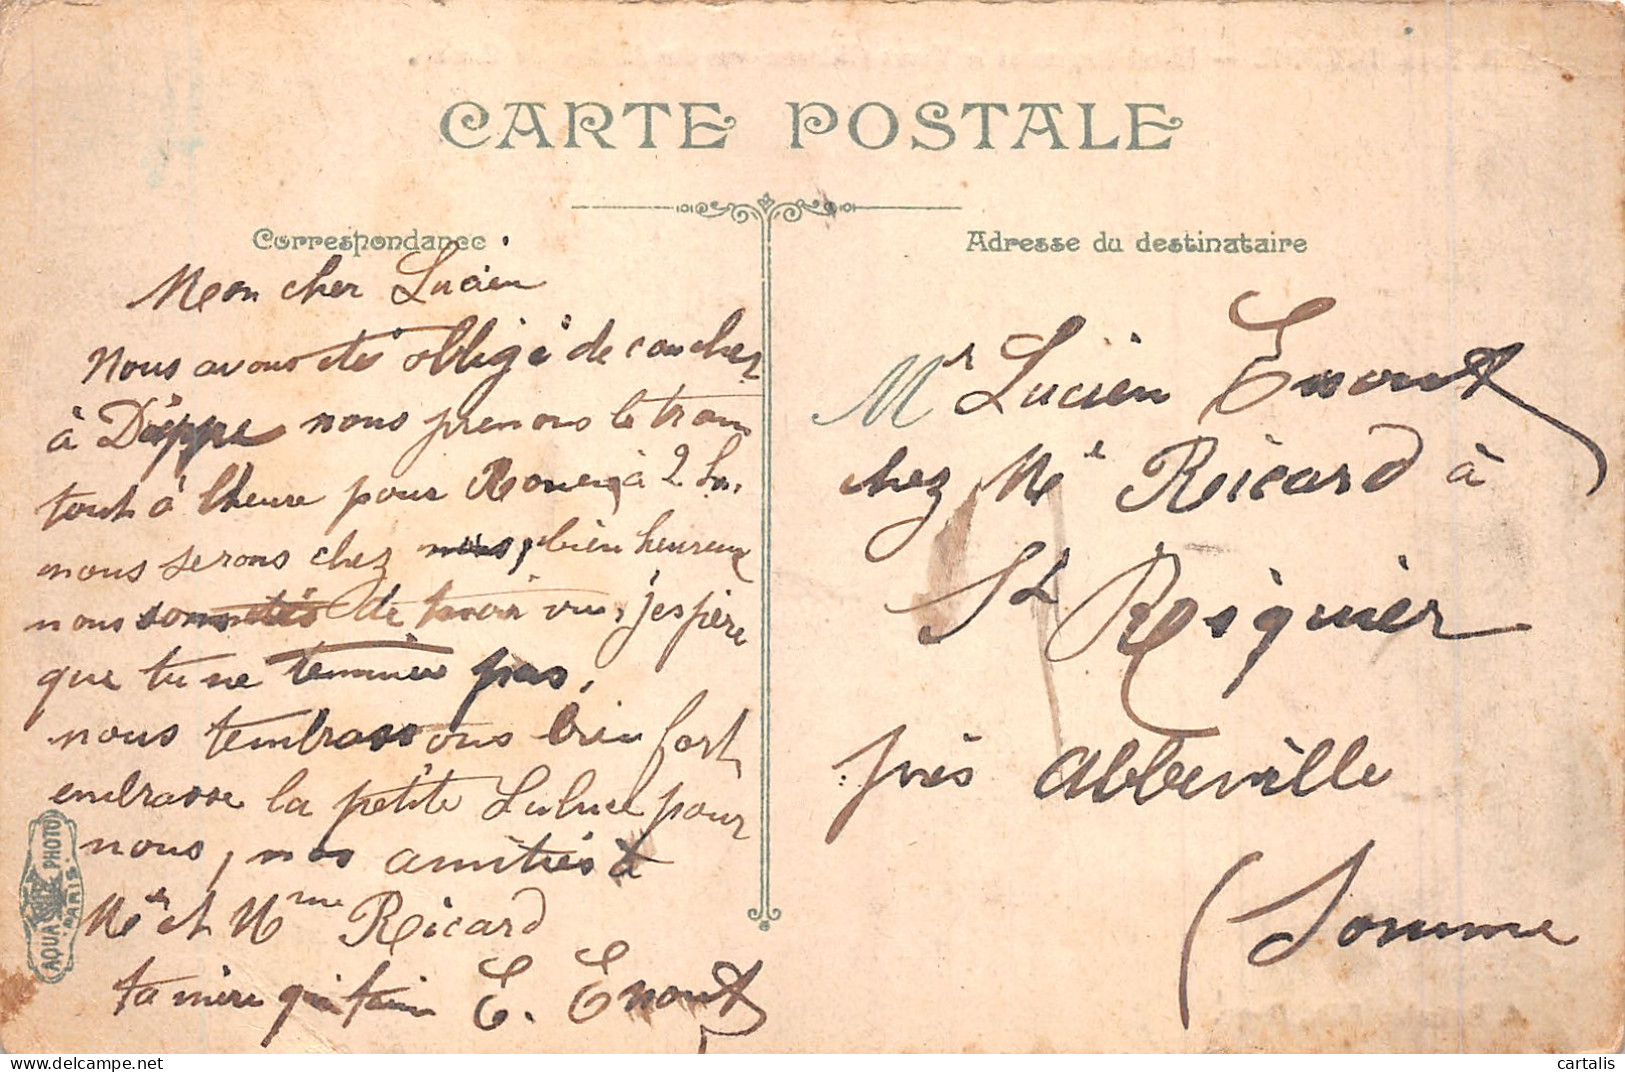 CARTE POSTALE
Correspondance
Mon cher Lucien
Nous avons été obligé de coucher
à Dieppe nous prenons le train
tout à l'heure pour Rouen, à 2 h.
nous serons chez nous, bien heureux
nous sommes de t'avoir vu, j'espère
que tu ne t'ennuie pas,
nous t'embrassons bien fort
embrasse la petite pour
nous, nos amitiés à
Mr et Mme Ricard
ta mère qui t'aime E. Enout
Adresse du destinataire
Mr Lucien Enout
chez Mr Ricard à
St Reiquier
près Abbeville
(Somme
AQUA PHOTO
PARIS
cartalis